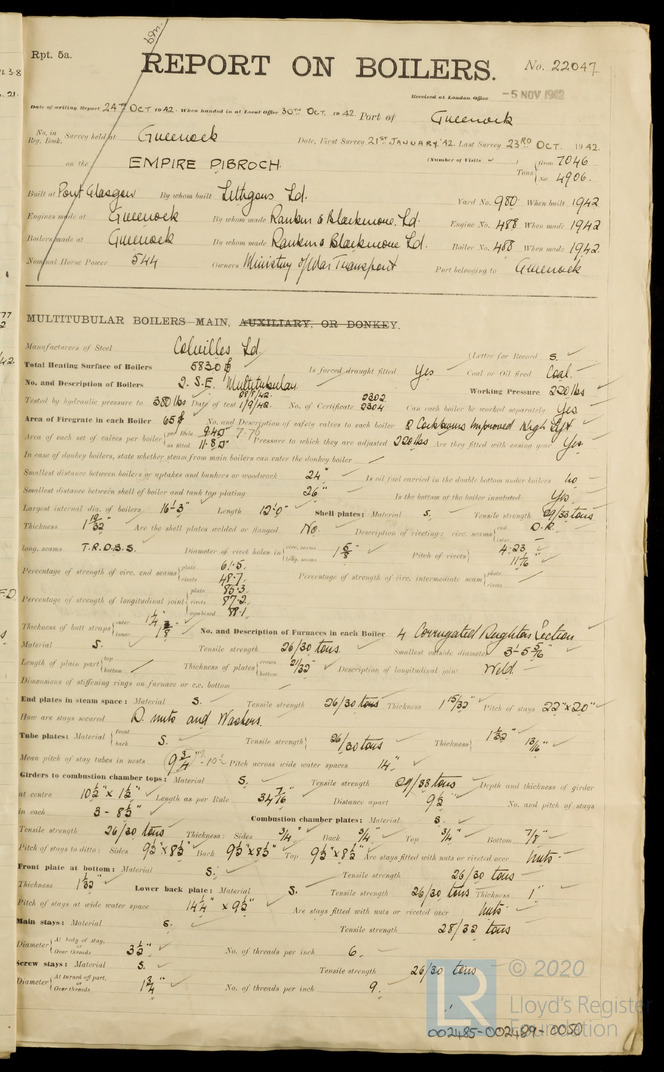 69m.
Rpt. 5a.
REPORT ON BOILERS.
No. 22047
Received at London Office -5 NOV 1942
Date of writing Report 24TH OCT. 1942. When handed in at Local Office 30TH OCT. 1942. Port of Greenock
No. in Reg. Book. Survey held at Greenock Date, First Survey 21ST JANUARY '42. Last Survey 23RD OCT. 1942.
on the EMPIRE PIBROCH. (Number of Visits ) Tons Gross 7046 Net 4906.
Built at Port Glasgow By whom built Lithgows Ld. Yard No. 980 When built 1942
Engines made at Greenock By whom made Rankin & Blackmore Ld. Engine No. 488 When made 1942
Boilers made at Greenock By whom made Rankin & Blackmore Ld. Boiler No. 488 When made 1942
Nominal Horse Power 544 Owners Ministry of War Transport Port belonging to Greenock
MULTITUBULAR BOILERS MAIN, AUXILIARY, OR DONKEY.
Manufacturers of Steel Colvilles Ld (Letter for Record S.
Total Heating Surface of Boilers 5830 Is forced draught fitted Yes Coal or Oil fired Coal.
No. and Description of Boilers 2. S.E. Multitubular Working Pressure 220 lbs
Tested by hydraulic pressure to 380 lbs Date of test 1/9/42. No. of Certificate 2302 2304 Can each boiler be worked separately Yes
Area of Firegrate in each Boiler 65 No. and Description of safety valves to each boiler 2 Cockburns Improved High Lift
Area of each set of valves per boiler per Rule as fitted Pressure to which they are adjusted 220 lbs Are they fitted with easing gear Yes
In case of donkey boilers, state whether steam from main boilers can enter the donkey boiler
Smallest distance between boilers or uptakes and bunkers or woodwork 24" Is oil fuel carried in the double bottom under boilers no
Smallest distance between shell of boiler and tank top plating 26" Is the bottom of the boiler insulated Yes
Largest internal dia. of boilers 16'-3" Length 12'-0" Shell plates: Material S. Tensile strength 29/33 tons
Thickness 1 19/32" Are the shell plates welded or flanged No. Description of riveting: circ. seams end D.R. inter.
long. seams T.R.D.B.S. Diameter of rivet holes in circ. seams long. seams 1 5/8 Pitch of rivets 4.23 11 1/16
Percentage of strength of circ. end seams plate 61.5. rivets 48.7. Percentage of strength of circ. intermediate seam plate rivets
Percentage of strength of longitudinal joint plate 85.3. rivets 87.2. combined 88.1.
Thickness of butt straps outer 1 1/4 inner 1 3/8 No. and Description of Furnaces in each Boiler 4 Corrugated Deighton Section
Material S. Tensile strength 26/30 tons. Smallest outside diameter 3'-5 5/16"
Length of plain part top bottom Thickness of plates crown bottom 21/32 Description of longitudinal joint Weld.
Dimensions of stiffening rings on furnace or c.c. bottom
End plates in steam space: Material S. Tensile strength 26/30 tons Thickness 1 15/32" Pitch of stays 22" x 20"
How are stays secured D. nuts and Washers.
Tube plates: Material front back S. Tensile strength 26/30 tons Thickness 1 1/32" 13/16"
Mean pitch of stay tubes in nests 9 3/4" Pitch across wide water spaces 14"
Girders to combustion chamber tops: Material S. Tensile strength 29/33 tons Depth and thickness of girder
at centre 10 1/2" x 1 1/2" Length as per Rule 34 7/16" Distance apart 9 1/2" No. and pitch of stays
in each 3 - 8 1/2" Combustion chamber plates: Material S.
Tensile strength 26/30 tons Thickness: Sides 3/4" Back 3/4" Top 3/4" Bottom 7/8"
Pitch of stays to ditto: Sides 9 1/2" x 8 1/2" Back 9 1/2" x 8 1/2" Top 9 1/2" x 8 1/2" Are stays fitted with nuts or riveted over nuts
Front plate at bottom: Material S. Tensile strength 26/30 tons
Thickness 1 1/32" Lower back plate: Material S. Tensile strength 26/30 tons Thickness 1"
Pitch of stays at wide water space 14 1/4" x 9 1/2" Are stays fitted with nuts or riveted over nuts
Main stays: Material S. Tensile strength 28/32 tons
Diameter At body of stay, or Over threads 3 1/2" No. of threads per inch 6.
Screw stays: Material S. Tensile strength 26/30 tons
Diameter At turned off part, or Over threads 1 3/4" No. of threads per inch 9.
LR © 2020 Lloyd's Register Foundation
002485-002489-0050